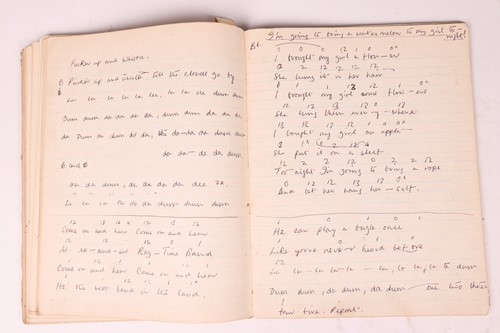 Pucker up and whistle.
Pucker up and whistle till the clouds go by
La la la la la lee, la la de dum dum
Dum dum da da de da, dum dum da da da
da Dum da dum dd da, da da dum dum
da da de da dum.
and
da da dum, de da da da dee 2x.
La la la da da dum dum dum
12 13 12 13 12
Come on and hear Come on and hear
12 13 12 3 1
Al-ex-and-er Rag-Time Band
Come on and hear Come on and hear
Its the best band in the land.
I'm going to bring a water melon to my girl to-night!
0 0 0 12 1 0 0°
I brought my girl a flow-er
2 12 12 12 12
She hung it in her hair
1 1 13 12 1 0°
I brought my girl some flow-ers
12 13 12 13 0 13
She hung them every-where
13 13 13 12 1 0 0°
I bought my girl an apple
She put it on a shelf
12 2 2 12 0 2 2 12
To-night I'm going to bring a rope
0 12 12 12 13 0
And let her hang her-self.
He can play a bugle once
Like you've never heard before
12
La la la la la
Dum dum, da dum, da dum one two three
1
four five. Repeat.